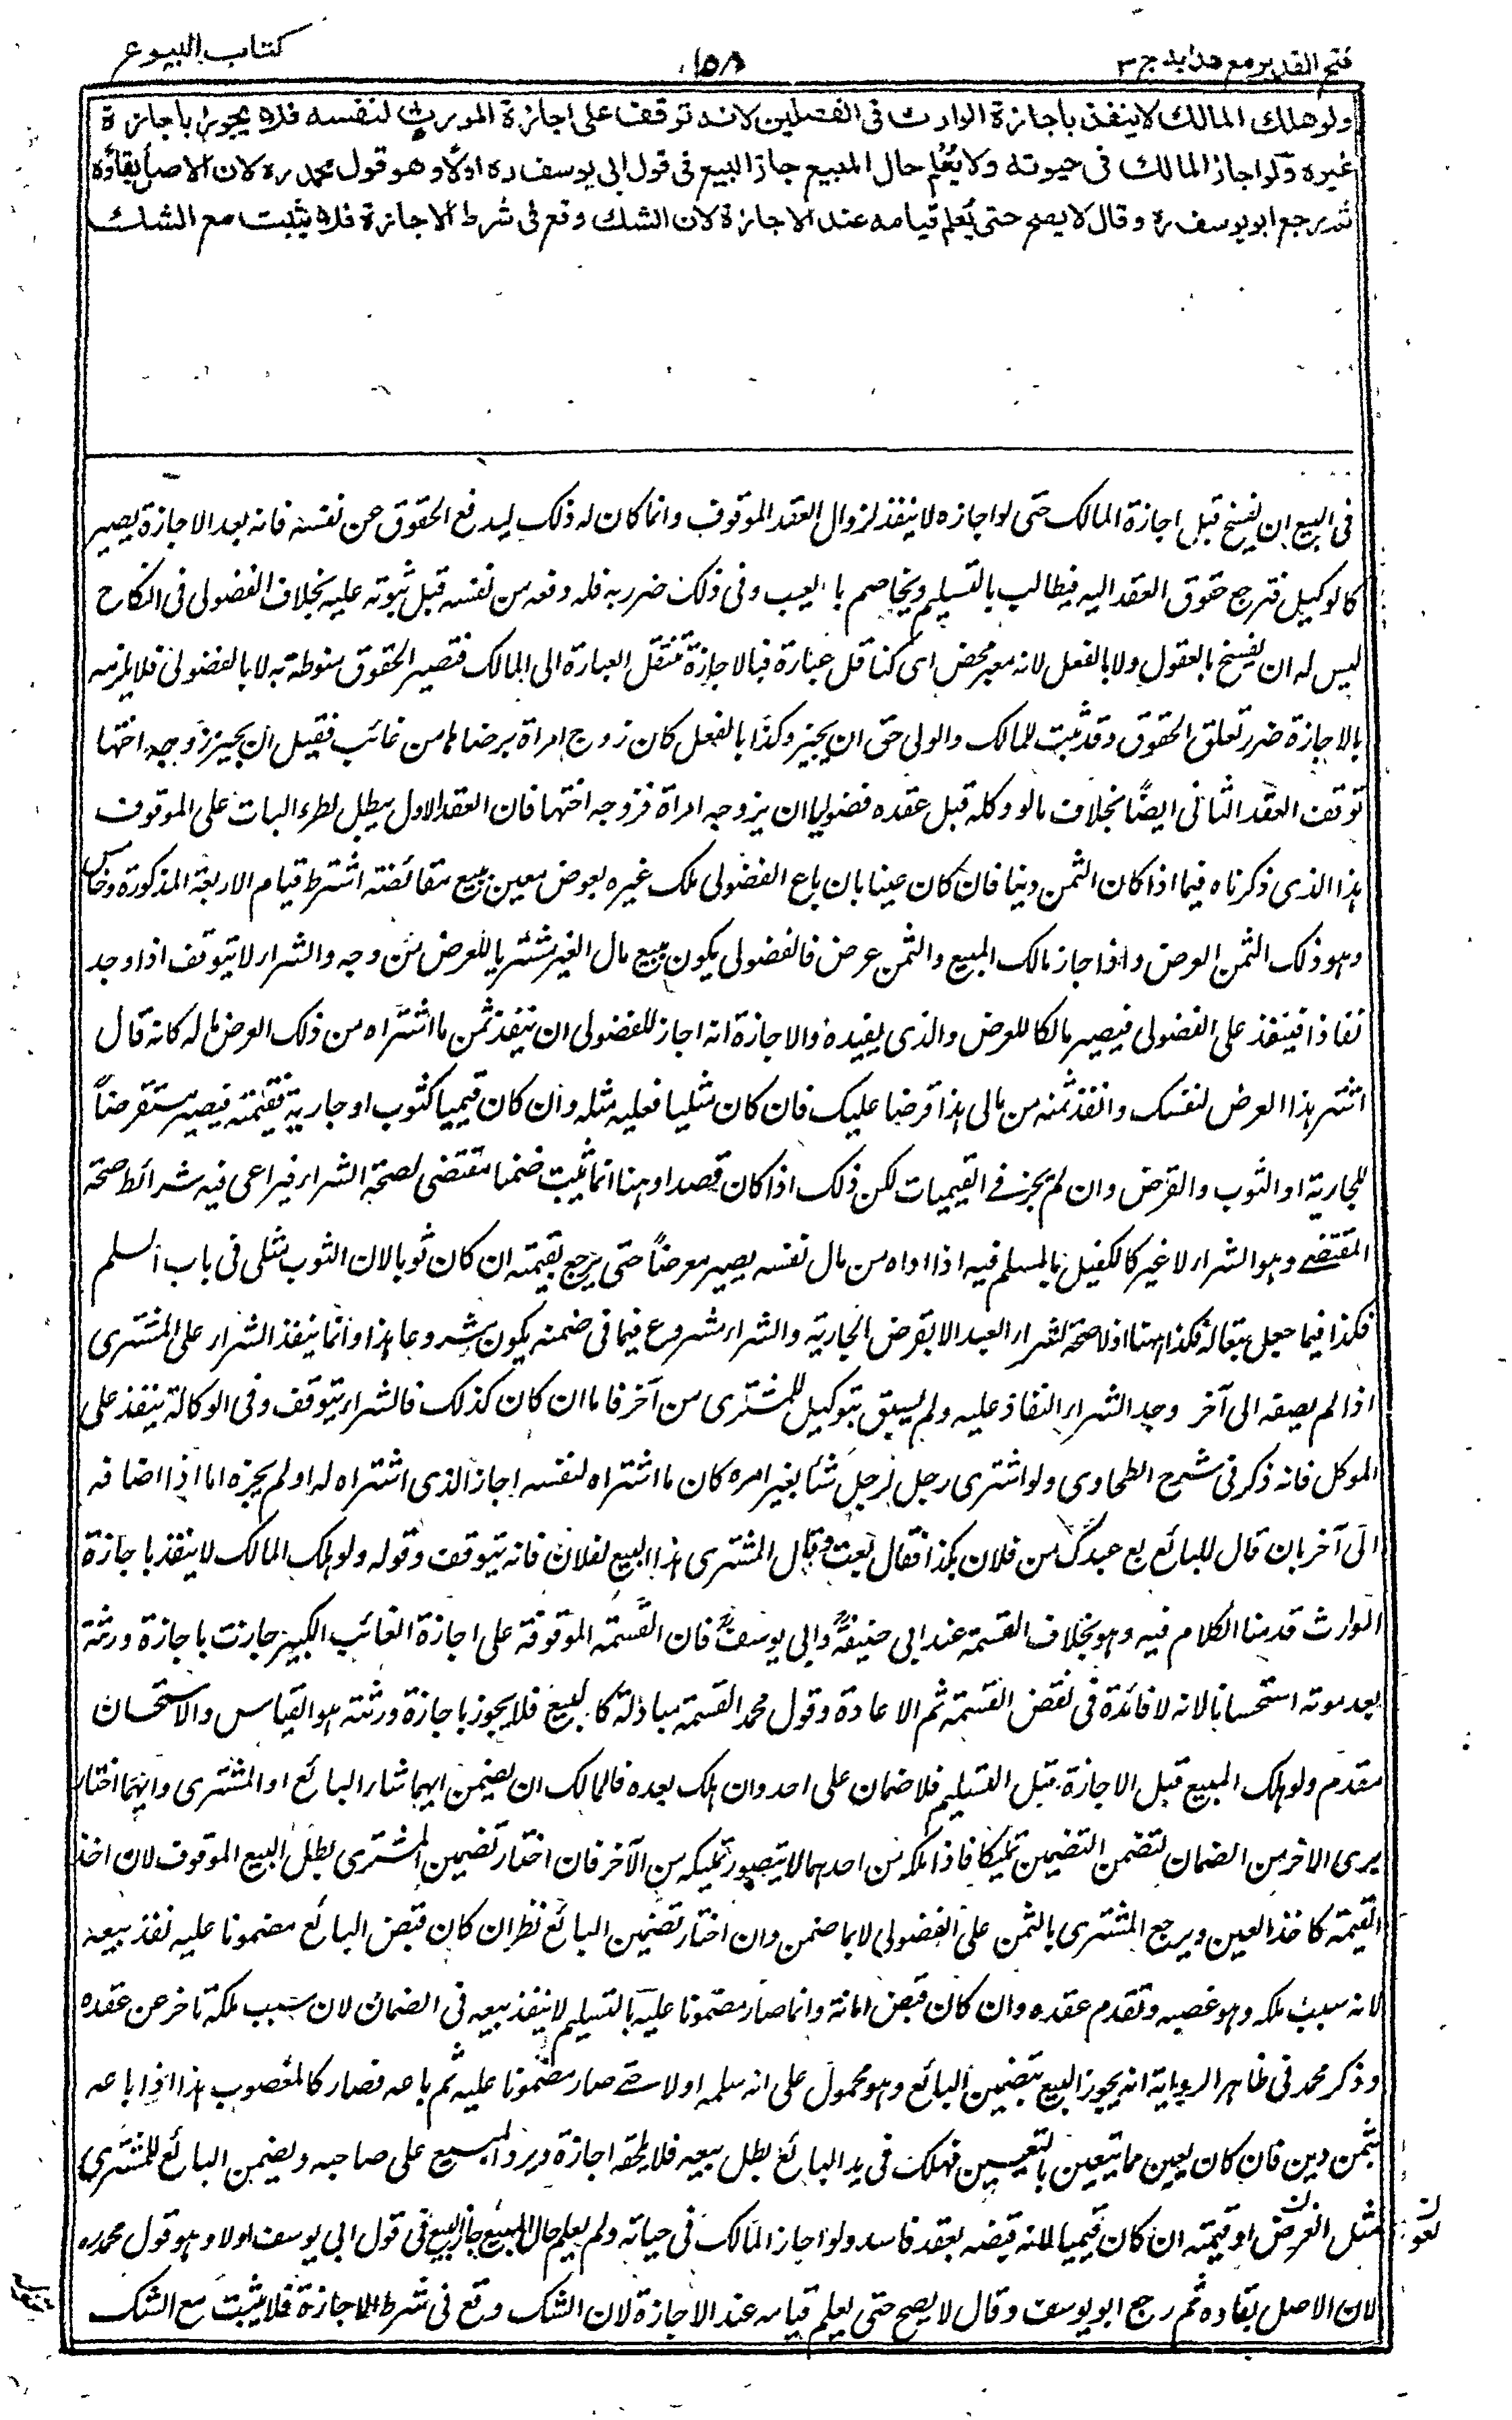 فتح القدير مع هدايه ج ٣
١٥٨
كتاب البيوع
ولو هلك المالك لا ينفذ باجازة الوارث فى الفصلين لانه توقف على اجازة المورث لنفسه فلا يجوز باجازة
غيره ولو اجاز المالك فى حيوته ولا يُعْلم حال المبيع جاز البيع فى قول ابى يوسف ره اولًا وهو قول محمد ره لان الاصل بقاؤه
ثم رجع ابو يوسف ره وقال لا يصح حتى يُعلم قيامه عند الاجازة لان الشك وقع فى شرط الاجازة فلا يثبت مع الشك
فى البيع ان يفسخ قبل اجازة المالك حتى لو اجازه لا ينفذ لزوال العقد الموقوف وانما كان له ذلك ليدفع الحقوق عن نفسه فانه بعد الاجازة يصير
كالوكيل فترجع حقوق العقد اليه فيطالب بالتسليم ويخاصم بالعيب وفى ذلك ضرر به فله دفعه من نفسه قبل ثبوته عليه بخلاف الفضولى فى النكاح
ليس له ان يفسخ بالقول ولا بالفعل لانه معبر محض اى كناقل عبارة فبالاجازة تنتقل العبارة الى المالك فتصير الحقوق منوطة به لا بالفضولى فلا يلزمه
بالاجازة ضرر تعلق الحقوق وقد ثبت للمالك والولى حق ان يجيز وكذا بالفعل كان زوج امراة برضاها من غائب فقبل ان يجيز زوجه اختها
توقف العقد الثانى ايضًا بخلاف ما لو وكله قبل عقده فضوليا ان يزوجه امراة فزوجه اختها فان العقد الاول يبطل لطرء البات على الموقوف
هذا الذى ذكرناه فيما اذا كان الثمن دينا فان كان عينا بان باع الفضولى ملك غيره بعوض معين بيع مقائضته اشترط قيام الاربعة المذكورة وخامس
وهو ذلك الثمن العرض واذا جاز مالك المبيع والثمن عرض فالفضولى يكون ببيع مال الغير مشتريا للعرض من وجه والشراء لا يتوقف اذا وجد
نفاذا فينفذ على الفضولى فيصير مالكا للعرض والذى يفيده والاجازة انه اجاز للفضولى ان ينفذ ثمن ما اشتراه من ذلك العرض ماله كانه قال
اشتر هذا العرض لنفسك وانقد ثمنه من مالى هذا قرضا عليك فان كان مثليا فعليه مثله وان كان قيميا كثوب او جارية فقيمته فيصير مستقرضاً
للجارية او الثوب والقرض وان لم يجز فى القيميات لكن ذلك اذا كان قصدا وههنا انما ثبت ضمنا مقتضى لصحة الشراء فيراعى فيه شرائط صحة
المقتضى وهو الشراء لا غير كالكفيل بالمسلم فيه اذا اداه من مال نفسه يصير مقرضاً حتى يرجع بقيمته ان كان ثوبا لان الثوب مثلى فى باب السلم
فكذا فيما جعل تبعا له فكذا ههنا اذ لا صحة لشراء العبد الا بقرض الجارية والشراء مشروع فيما فى ضمنه يكون مشروعا هذا وانما ينفذ الشراء على المشترى
اذا لم يضفه الى آخر وجد الشراء النفاذ عليه ولم يسبق بتوكيل للمشترى من آخر فاما ان كان كذلك فالشراء يتوقف وفى الوكالة ينفذ على
الموكل فانه ذكر فى شرح الطحاوى ولو اشترى رجل لرجل شئا بغير امره كان ما اشتراه لنفسه اجاز الذى اشتراه له او لم يجزه اما اذا اضافه
الى آخر بان قال للبائع بع عبدك من فلان بكذا فقال بعت وقال المشترى هذا البيع لفلان فانه يتوقف وقوله ولو هلك المالك لا ينفذ باجازة
الوارث قدمنا الكلام فيه وهو بخلاف القسمة عند ابى حنيفةؒ وابى يوسفؒ فان القسمة الموقوفة على اجازة الغائب الكبير جازت باجازة ورثته
بعد موته استحسانا لانه لا فائدة فى نقض القسمة ثم الاعادة وقول محمد القسمة مبادلة كالبيع فلا يجوز باجازة ورثته هو القياس والاستحسان
مقدم ولو هلك المبيع قبل الاجازة قبل التسليم فلا ضمان على احد وان هلك بعده فالمالك ان يضمن ايهما شاء البائع او المشترى وايهما اختار
برى الاخر من الضمان لتضمن التضمين تمليكا فاذا ملكه من احدهما لا يتصور تمليكه من الآخر فان اختار تضمين المشترى بطل البيع الموقوف لان اخذ
القيمة كاخذ العين ويرجع المشترى بالثمن على الفضولى لا بما ضمن وان اختار تضمين البائع نظر ان كان قبض البائع مضمونا عليه نفذ بيعه
لانه سبب ملكه وهو غصبه وتقدم عقده وان كان قبض امانة وانما صار مضمونا عليه بالتسليم لا ينفذ بيعه فى الضمان لان سبب ملكه تاخر عن عقده
وذكر محمد فى ظاهر الرواية انه يجوز البيع بتضمين البائع وهو محمول على انه سلمه اولا حتى صار مضمونا عليه ثم باعه فصار كالمغصوب هذا اذا باعه
بثمن دين فان كان بعين مما يتعين بالتعيين فهلك فى يد البائع بطل بيعه فلا يلحقه اجازة ويرد المبيع على صاحبه ويضمن البائع للمشترى
مثل العرض او قيمته ان كان قيميا لانه قبضه بعقد فاسد ولو اجاز المالك فى حياته ولم يعلم حال المبيع جاز البيع فى قول ابى يوسف اولا وهو قول محمد ره
لان الاصل بقاءه ثم رجع ابو يوسف وقال لا يصح حتى يعلم قيامه عند الاجازة لان الشك وقع فى شرط الاجازة فلا يثبت مع الشك